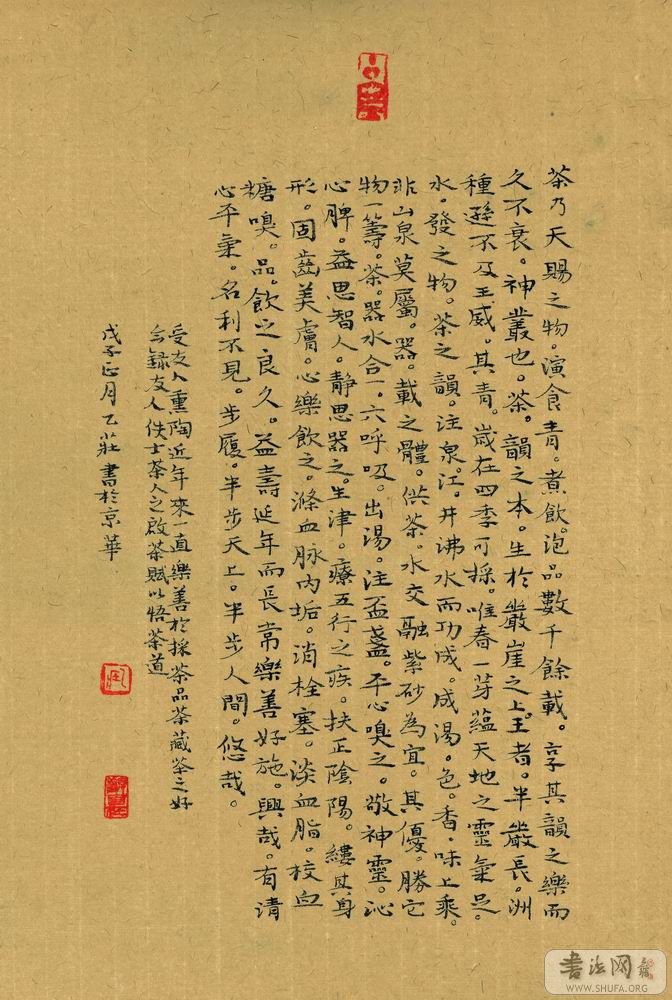 茶乃天賜之物。演食青。煮飲。泡品數千餘載。享其韻之樂而
久不衰。神叢也。茶。韻之本。生於巖崖之上。王者。半巖長。洲
種遜不及王威。其青。歲在四季可採。唯春一芽蘊天地之靈氣足。
水。發之物。茶之韻。注泉。江。井沸水而功成。成湯。色。香。味上乘。
非山泉莫屬。器。載之體。供茶。水交融紫砂為宜。其優。勝它
物一籌。茶。器水合一。六呼吸。出湯。注盃盞。平心嗅之。敬神靈。沁
心脾。益思智人。靜思器之。生津。療五行之疾。扶正陰陽。縷其身
形。固齒美膚。心樂飲之。滌血脉內垢。消栓塞。淡血脂。校血
糖嗅。品。飲之良久。益壽延年而長常樂善好施。興哉。有清
心平氣。名利不見。步履。半步天上。半步人間。悠哉。
受友人熏陶近年來一直樂善於採茶品茶藏茶之好
今錄友人佚士茶人之啟茶賦以悟茶道
戊子正月乙莊書於京華
書法网
WWW.SHUFA.ORG